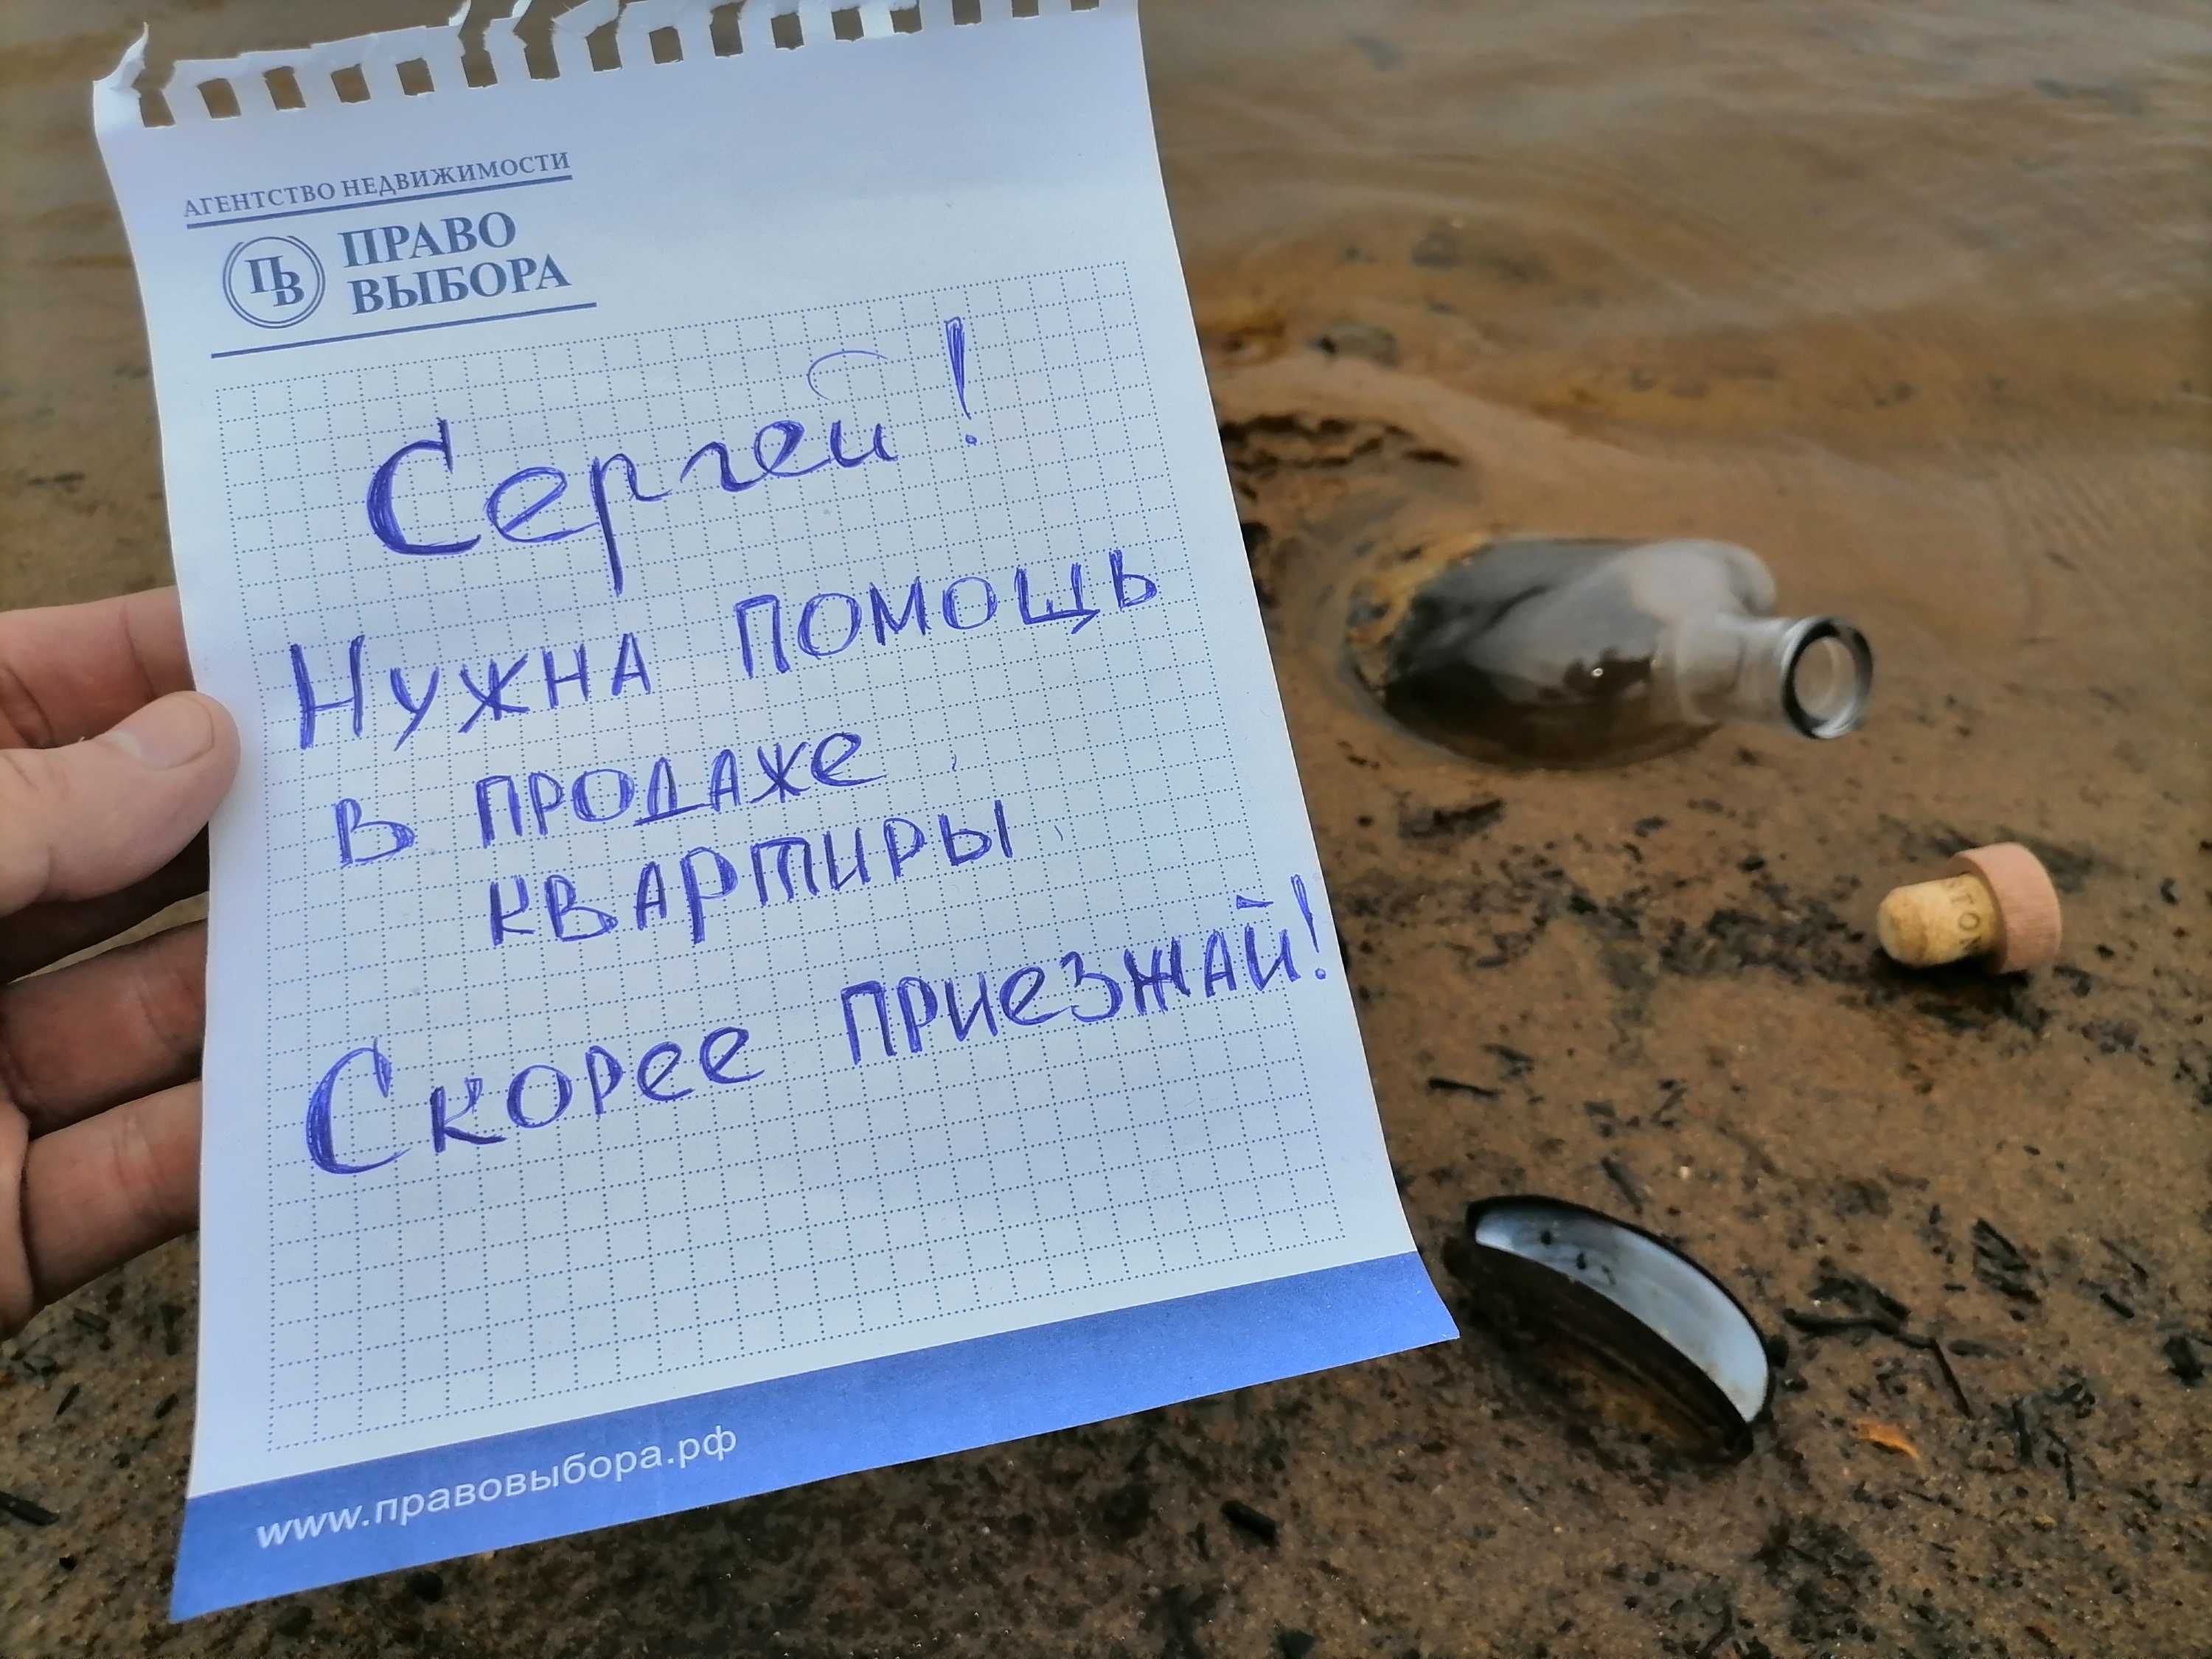 АГЕНТСТВО НЕДВИЖИМОСТИ
ПВ ПРАВО
ВЫБОРА
Сергей!
Нужна помощь
в продаже
квартиры
Скорее приезжай!
www.правовыбора.рф